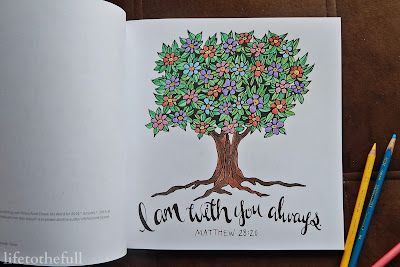 I am with you always
MATTHEW 28:20
lifetothefull